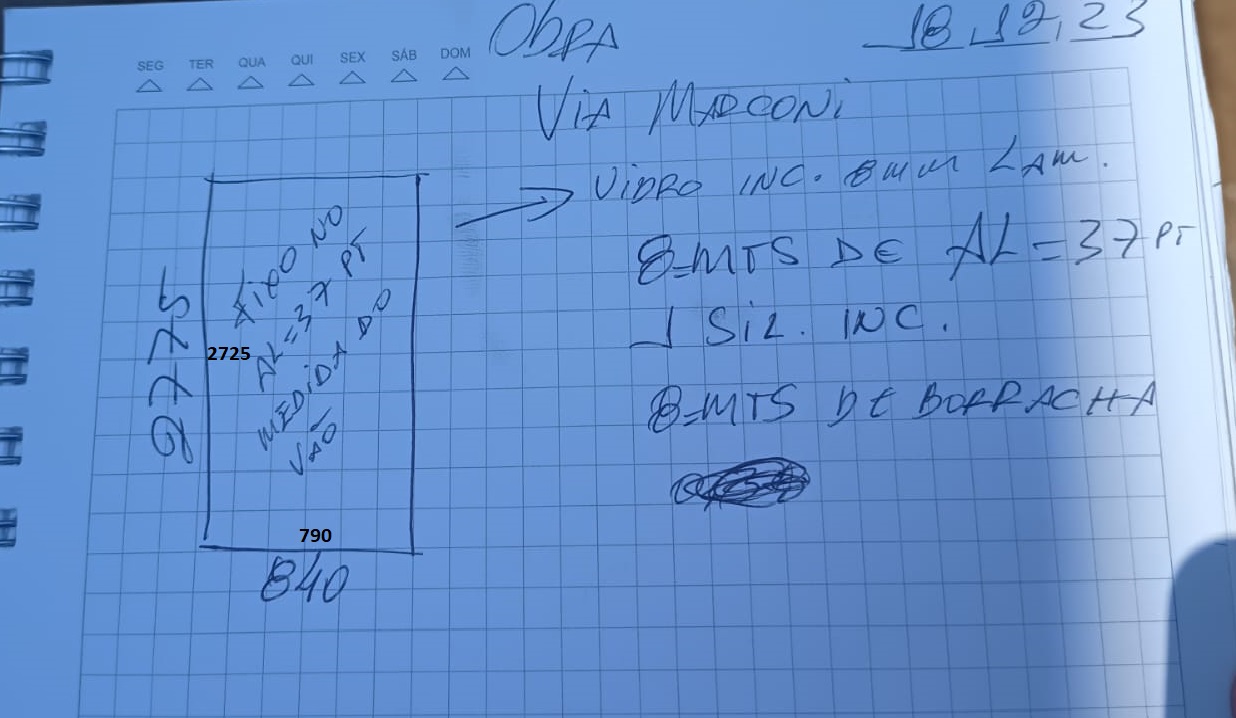 SEG TER QUA QUI SEX SÁB DOM
OBRA
18.12.23
VIA MARCONI
VIDRO INC. 8mm LAM.
8-MTS DE AL=37 PT
1 SIL. INC.
8-MTS DE BORRACHA
FIXO NO
AL=37 PT
MEDIDA DO
VÃO
2775
2725
790
840